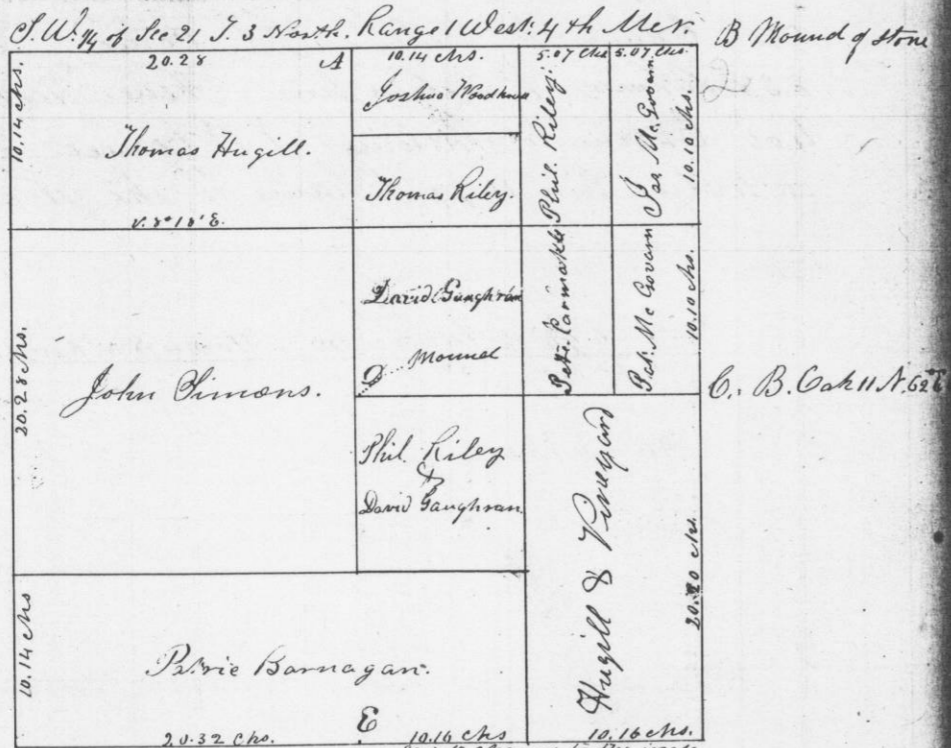 S.W. 1/4 of Sec 21 T. 3 North. Range 1 West. 4th Mer.
B Mound of stone
20.28
A
10.14 chs.
5.07 chs
5.07 chs.
10.14 chs.
Thomas Hugill.
V. 8° 18' E.
Joshua
Thomas Riley.
Phil. Riley.
Jas. McGovern
10.10 chs.
20.28 chs.
John Simons.
David Gaughran
Mound
Pat. McGovern
10.10 chs.
C. B. Oak 11 N. 62° E
Phil. Riley
&
David Gaughran
Hugill & Vineyard
20.20 chs.
10.14 chs
Barnagan.
20.32 chs.
E
10.16 chs
10.16 chs.